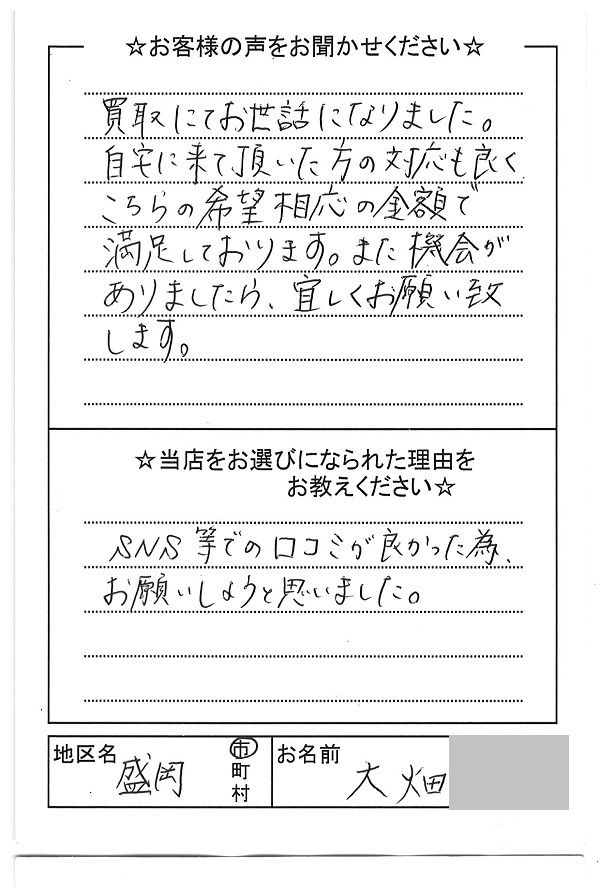 ☆お客様の声をお聞かせください☆
買取にてお世話になりました。
自宅に来て頂いた方の対応も良く
こちらの希望相応の金額で
満足しております。また機会が
ありましたら、宜しくお願い致
します。
☆当店をお選びになられた理由を
お教えください☆
SNS等での口コミが良かった為、
お願いしようと思いました。
地区名 盛岡 市 町 村 お名前 大畑